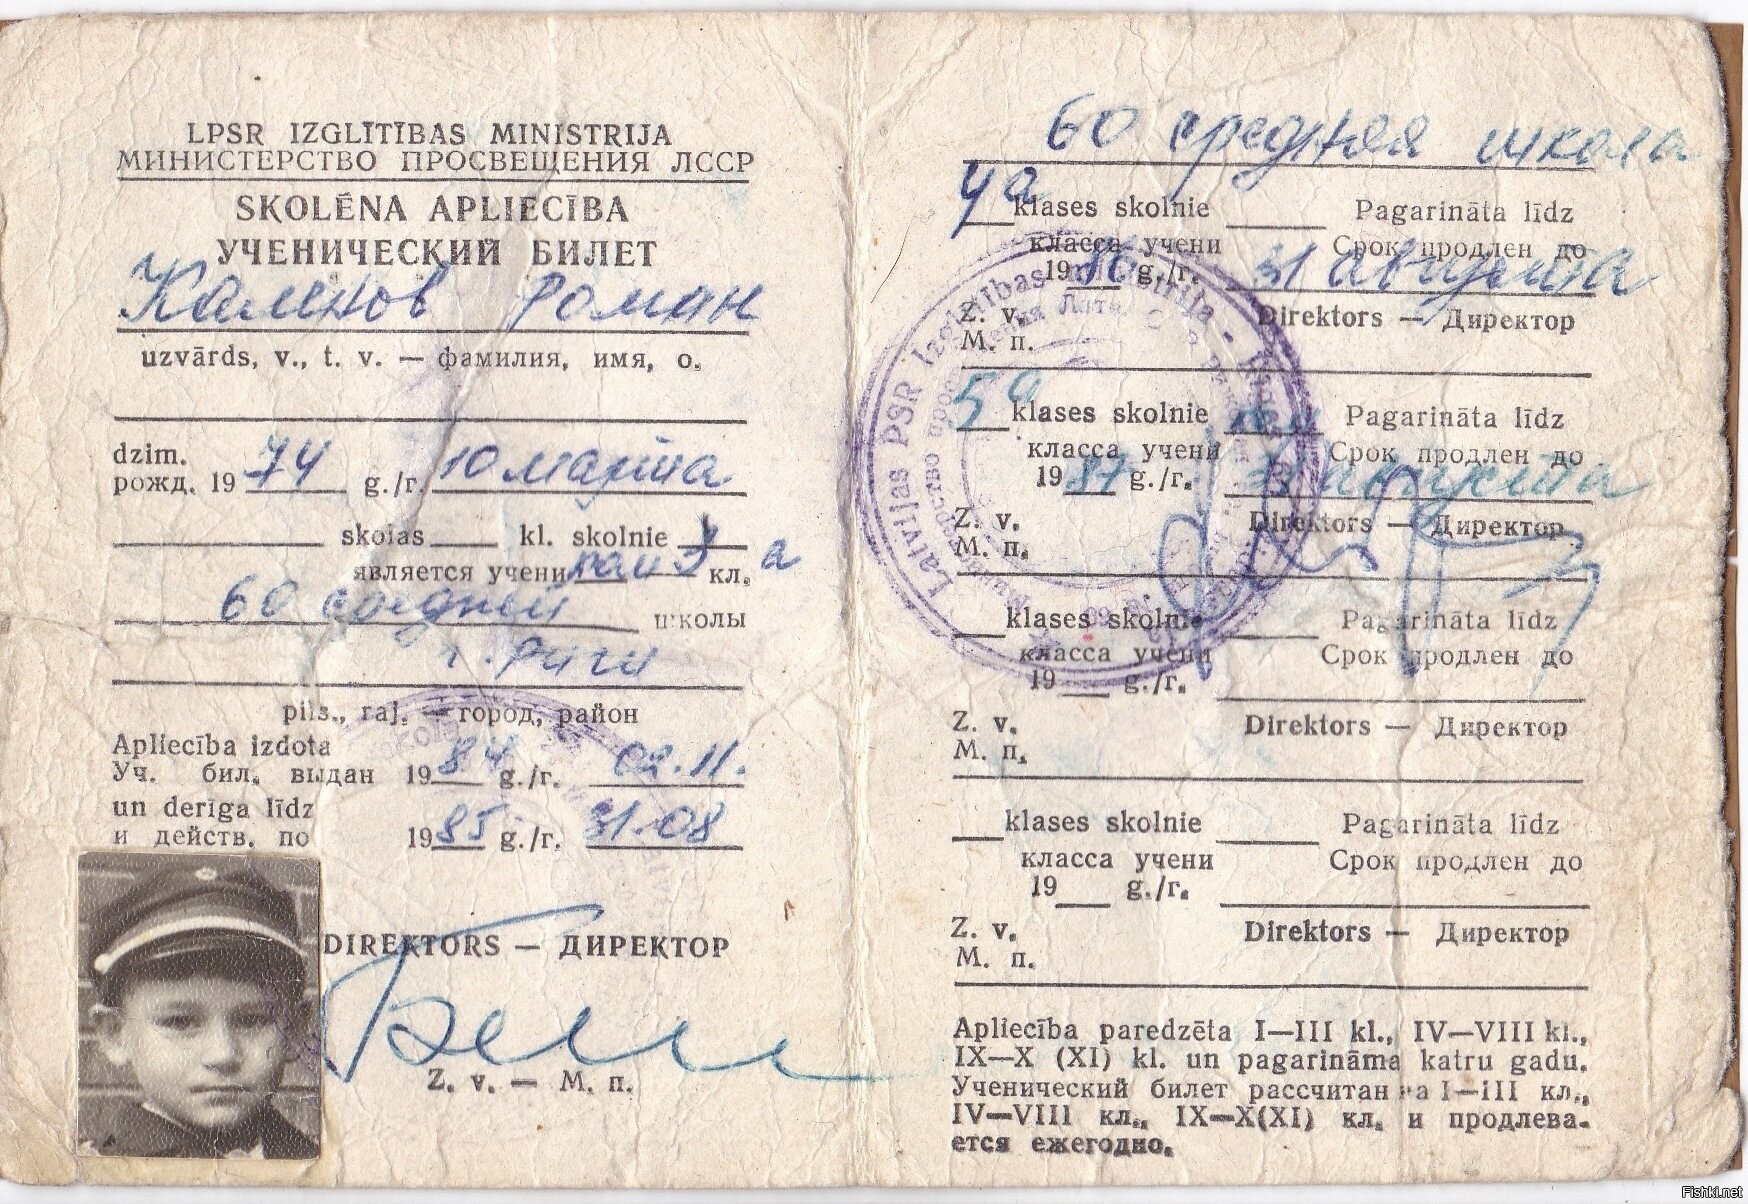 LPSR IZGLĪTĪBAS MINISTRIJA
МИНИСТЕРСТВО ПРОСВЕЩЕНИЯ ЛССР
SKOLĒNA APLIECĪBA
УЧЕНИЧЕСКИЙ БИЛЕТ
Каленов Роман
uzvārds, v., t. v. — фамилия, имя, о.
dzim.
рожд. 1974 g./г. 10 марта
skolas kl. skolnie
является учени ком 3 кл. а
60 средней школы
г. Риги
pils., raj. — город, район
Apliecība izdota
Уч. бил. выдан 1984 g./г. 02.11.
un derīga līdz
и действ. по 1985 g./г. 31.08
DIREKTORS — ДИРЕКТОР
Z. v. — М. п.
60 средняя школа
4а klases skolnie Pagarināta līdz
класса учени Срок продлен до
1986 g./г. 31 августа
Z. v. Direktors — Директор
М. п.
5а klases skolnie Pagarināta līdz
класса учени Срок продлен до
1987 g./г. 31 августа
Z. v. Direktors — Директор
М. п.
klases skolnie Pagarināta līdz
класса учени Срок продлен до
19 g./г.
Z. v. Direktors — Директор
М. п.
klases skolnie Pagarināta līdz
класса учени Срок продлен до
19 g./г.
Z. v. Direktors — Директор
М. п.
Apliecība paredzēta I—III kl., IV—VIII kl.,
IX—X (XI) kl. un pagarināma katru gadu.
Ученический билет рассчитан на I—III кл.,
IV—VIII кл., IX—X(XI) кл. и продлева-
ется ежегодно.
Latvijas PSR Izglītības ministrija
Fishki.net